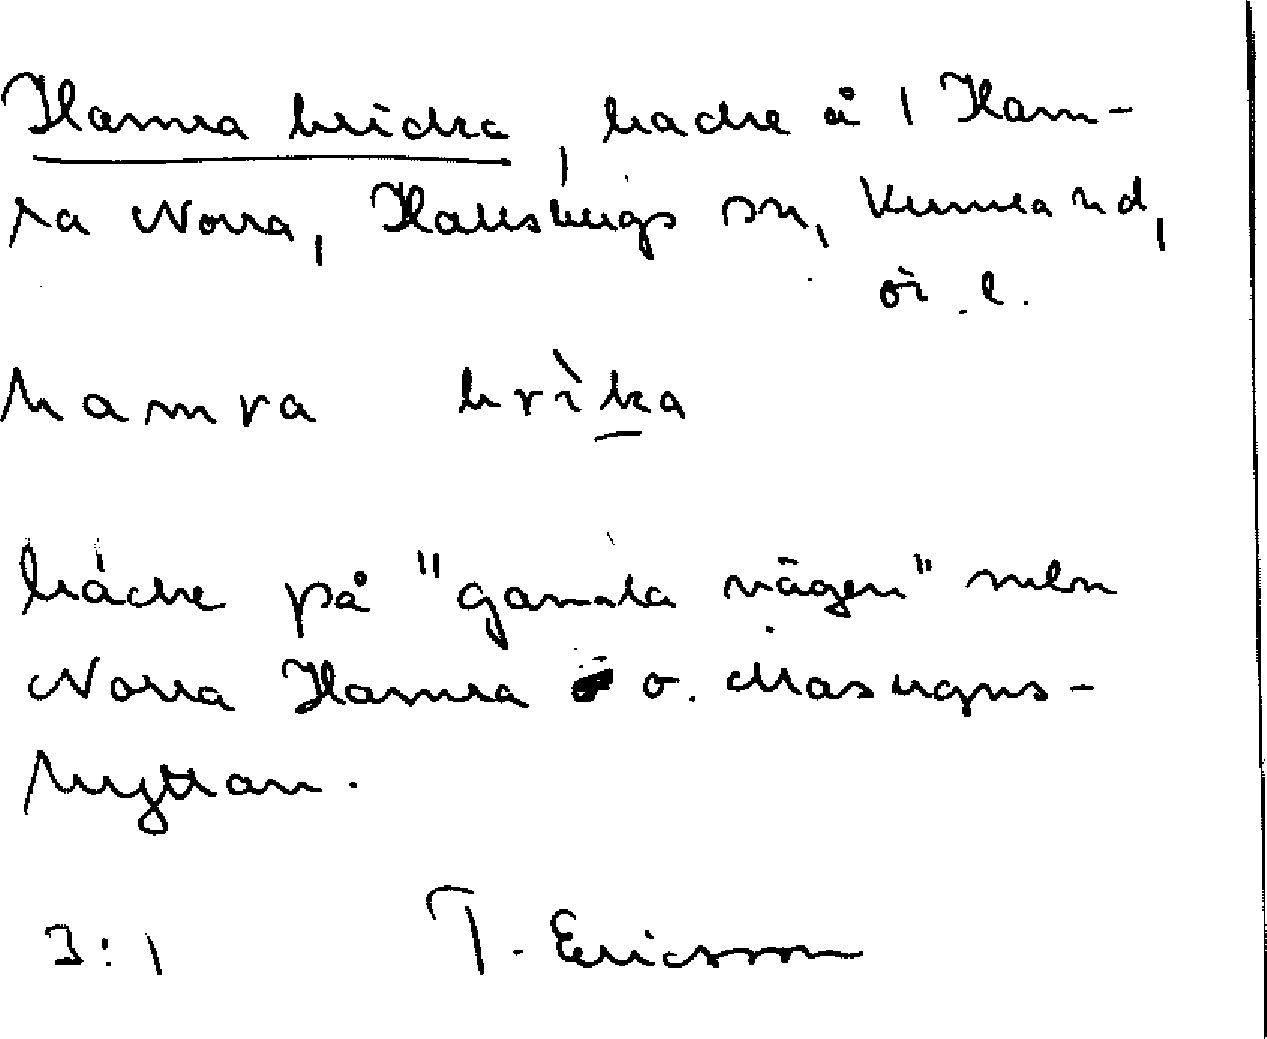 Hamra bricka, backe å 1 Ham-
ra Norra, Hallsbergs sn, Kumla hd,
ör. l.
hamra brìka
backe på "gamla vägen" mln
Norra Hamra o. Masugns-
hyttan.
3:1 T. Ericsson